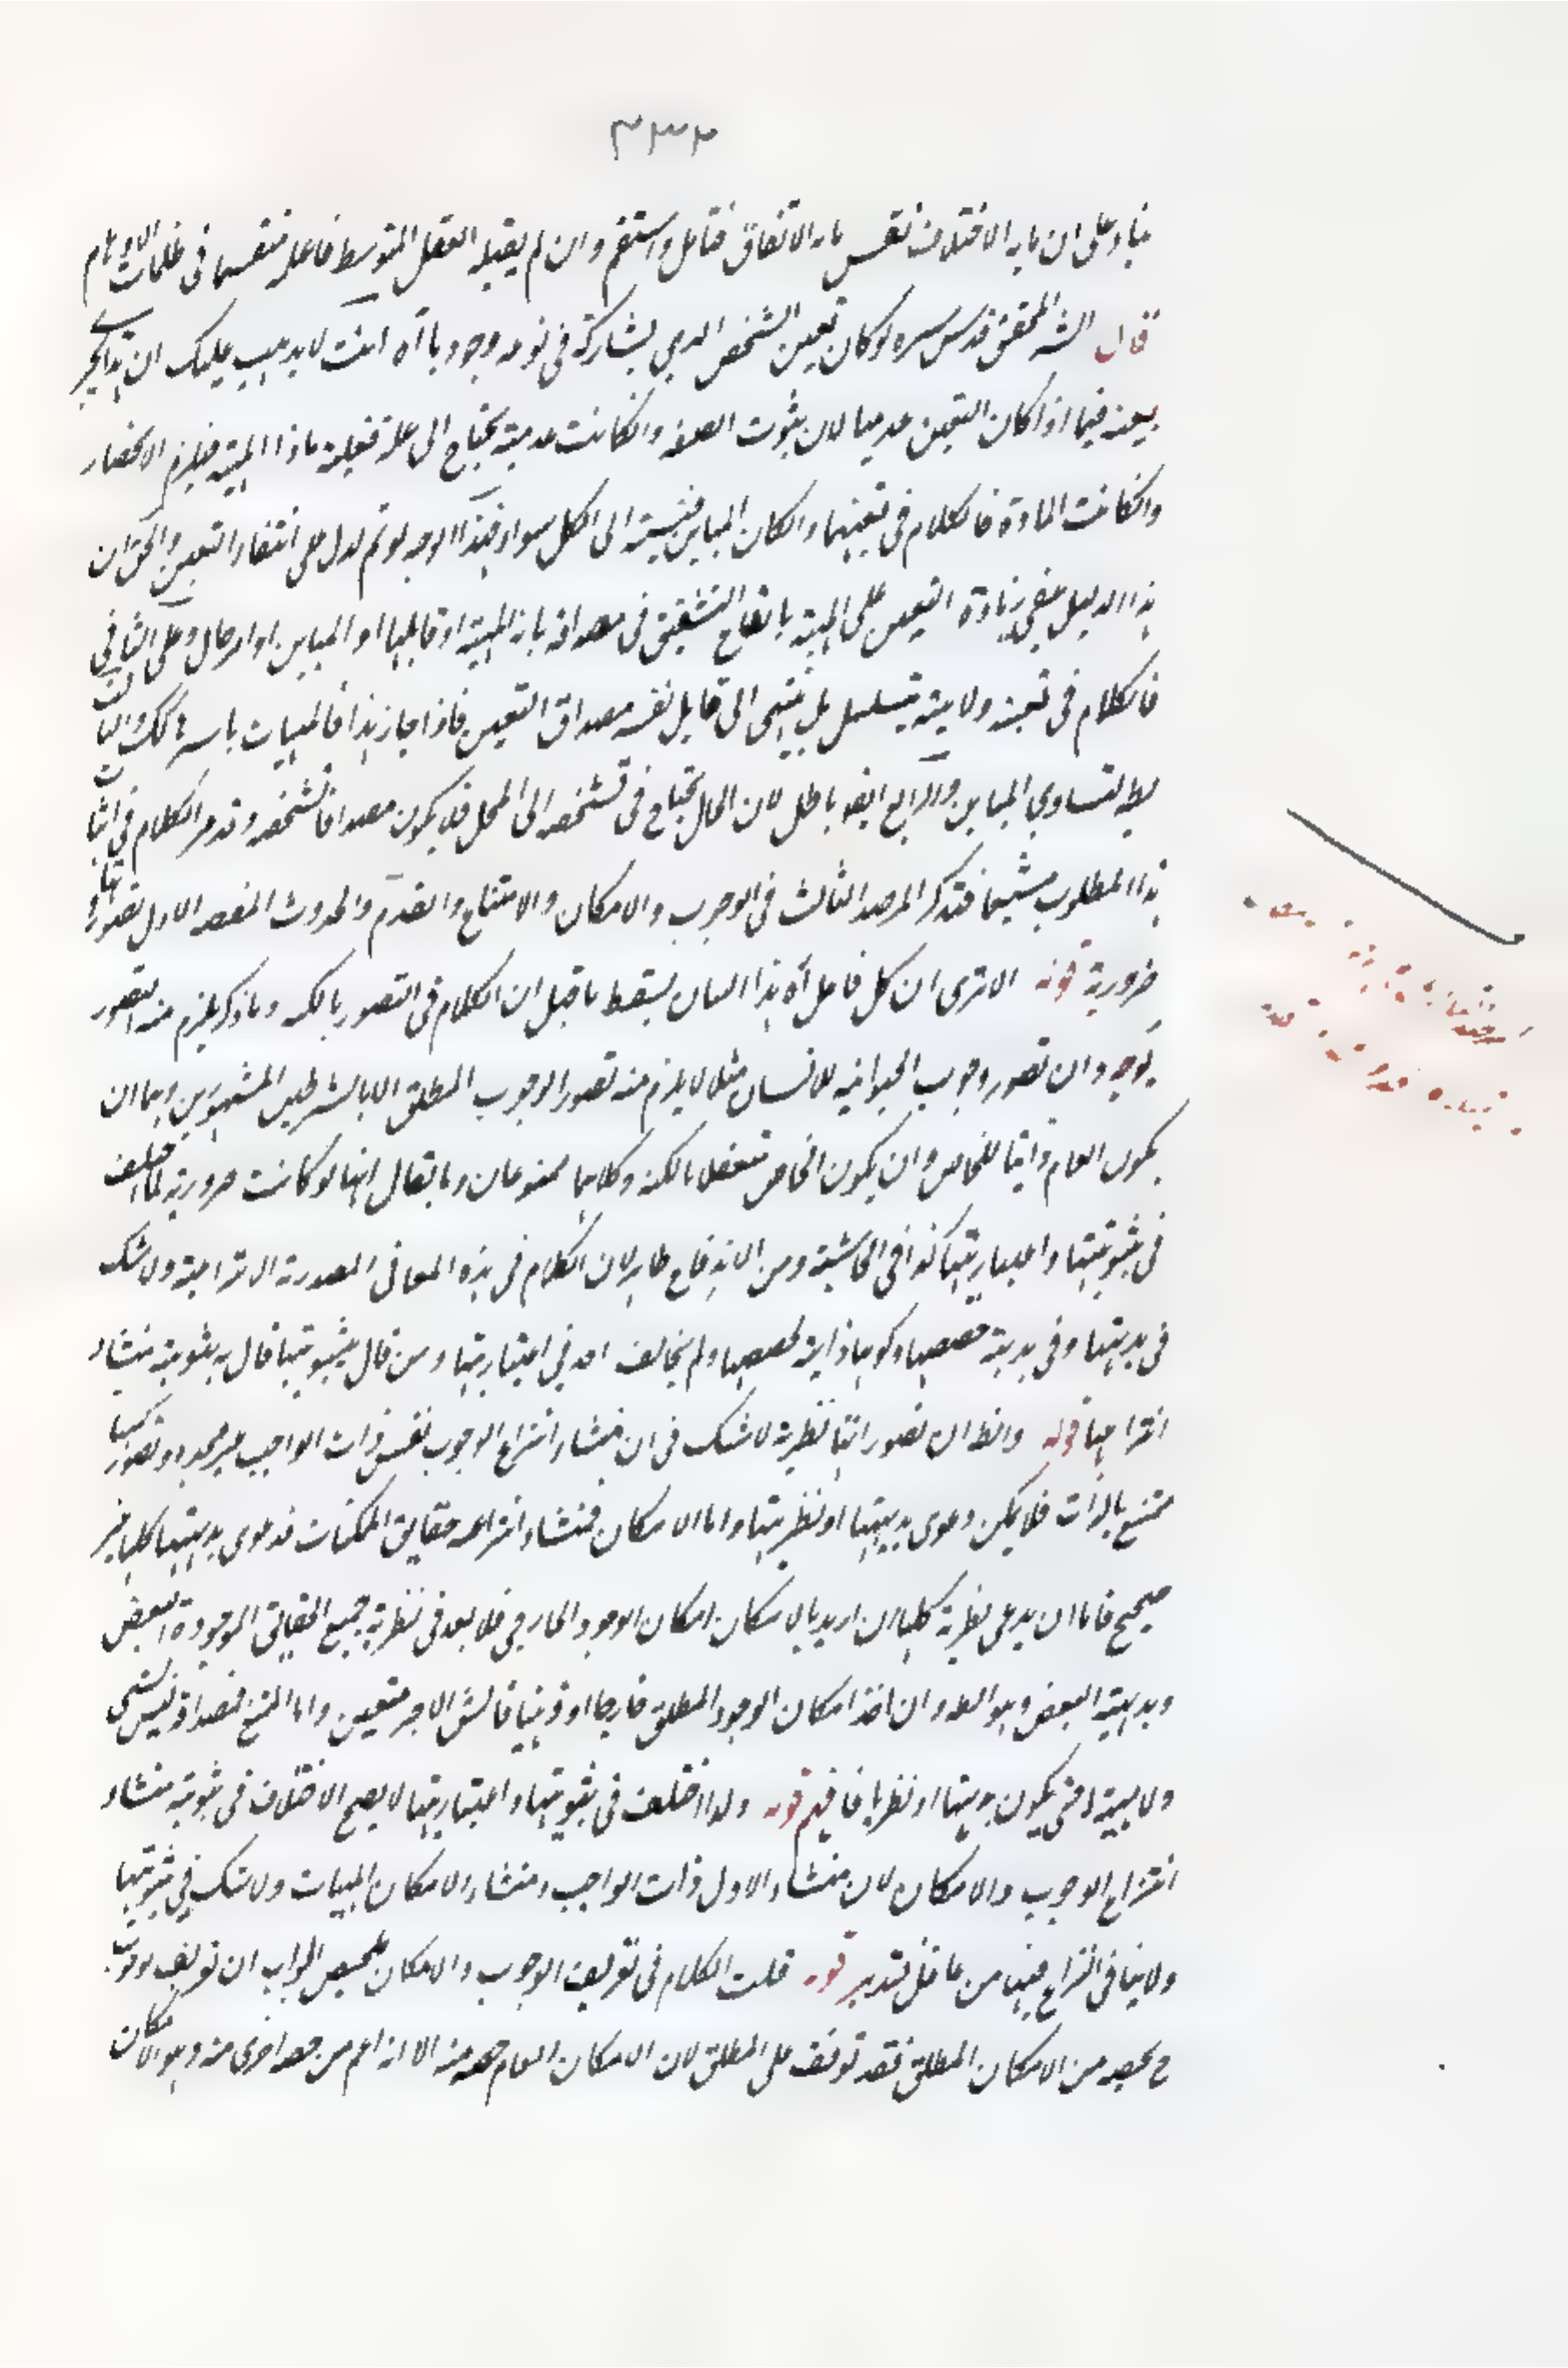 ۳۳۲
بناء على ان ما به الاختلاف نفس ما به الاتفاق فتامل واستقم وان لم يقبله العقل المتوسط فاعله منغمسا في ظلمات الاوهام
قال الشه المحقق قدس سره لو كان تعين الشخص الذي يشاركه في نوعه وجوديا آه انت لا يذهب عليك ان هذا يجرى
بعينه فيما اذا كان التعين عدميا لان ثبوت الصفة وانكانت عدمية يحتاج الى علة فعلية ماذا المهية فيلزم الانحصار
وانكانت المادة فالكلام في تعينها وانكان المباين فنسبته الى الكل سواء فهذا الوجه لو تم لدل على انتفاء التعين والحق ان
هذا الدليل ينفي زيادة التعين على المهية بايقاع التشقيق في مصداقه بانه المهية او قابلها او المباين او امر حال وعلى الثاني
فالكلام في تعينه ولا يتسلسل بل ينتهى الى قابل نفسه مصداق التعين فاذا جاز هذا فالمهيات باسرها كك والثالث
بط لتساوي المباين والرابع ايضا باطل لان الحال يحتاج في تشخصه الى المحل فلا يكون مصداقا لتشخصه وقد مر الكلام في اثبات
هذا المطلوب مشبعا فتذكر المرصد الثالث في الوجوب والامكان والامتناع والقدم والحدوث المقصد الاول تصوراتها
ضرورية قوله الا ترى ان كل عاقل آه هذا البيان يسقط ما قيل ان الكلام في التصور بالكنه وما ذكر يلزم منه التصور
بوجه وان تصور وجوب الحيوانية للانسان مثلا لا يلزم منه تصور الوجوب المطلق الا بالشرطين المشهورين وهما ان
يكون العام ذاتيا للخاص وان يكون الخاص متعقلا بالكنه وكلاهما ممنوعان وما يقال انها لو كانت ضرورية لما اختلف
في ثبوتيتها واعتباريتها كذا في الحاشية ومن الاندفاع ظاهر لان الكلام في هذه المعاني المصدرية الانتزاعية ولا شك
في بديهتها وفي بديهة حصصها وكونها ذاتية لحصصها ولم يخالف احد في اعتباريتها ومن قال بثبوتيتها قال به بثبوتية منشاء
انتزاعها قوله والظ ان تصوراتها نظرية لا شك في ان منشاء انتزاع الوجوب نفس ذات الواجب عز مجده وتصور كنهها
ممتنع بالذات فلا يمكن دعوى بديهيتها او نظريتها واما الامكان فمنشاء انتزاعه حقايق الممكنات فدعوى بديهيتها كلها غير
صحيح فاما ان يدعى نظرية كلها ان اريد بالامكان امكان الوجود الخارجي فلا بعد في نظرية جميع الحقائق الموجودة او البعض
وبديهية البعض وهو الظ وان اخذ امكان الوجود المطلق خارجا او ذهنيا فالشق الاخير متعين واما الممتنع فمصداقه ليس لشئ
ولا مهية له حتى يكون بديهيا او نظريا فافهم قوله ولهذا اختلف في ثبوتيتها واعتباريتها لا يصح الاختلاف في ثبوتية منشاء
انتزاع الوجوب والامكان لان منشاء الاول ذات الواجب ومنشاء الامكان المهيات ولا شك في ثبوتيتها
ولا ينافي النزاع فيهما من عاقل فتدبر قوله قلت الكلام في تعريف الوجوب والامكان تلخيص الجواب ان تعريف لو توقف
ح بحصة من الامكان المطلق فقد توقف على المطلق لان الامكان العام حصة منه الا انه اعم من حصة اخرى منه وهو الامكان